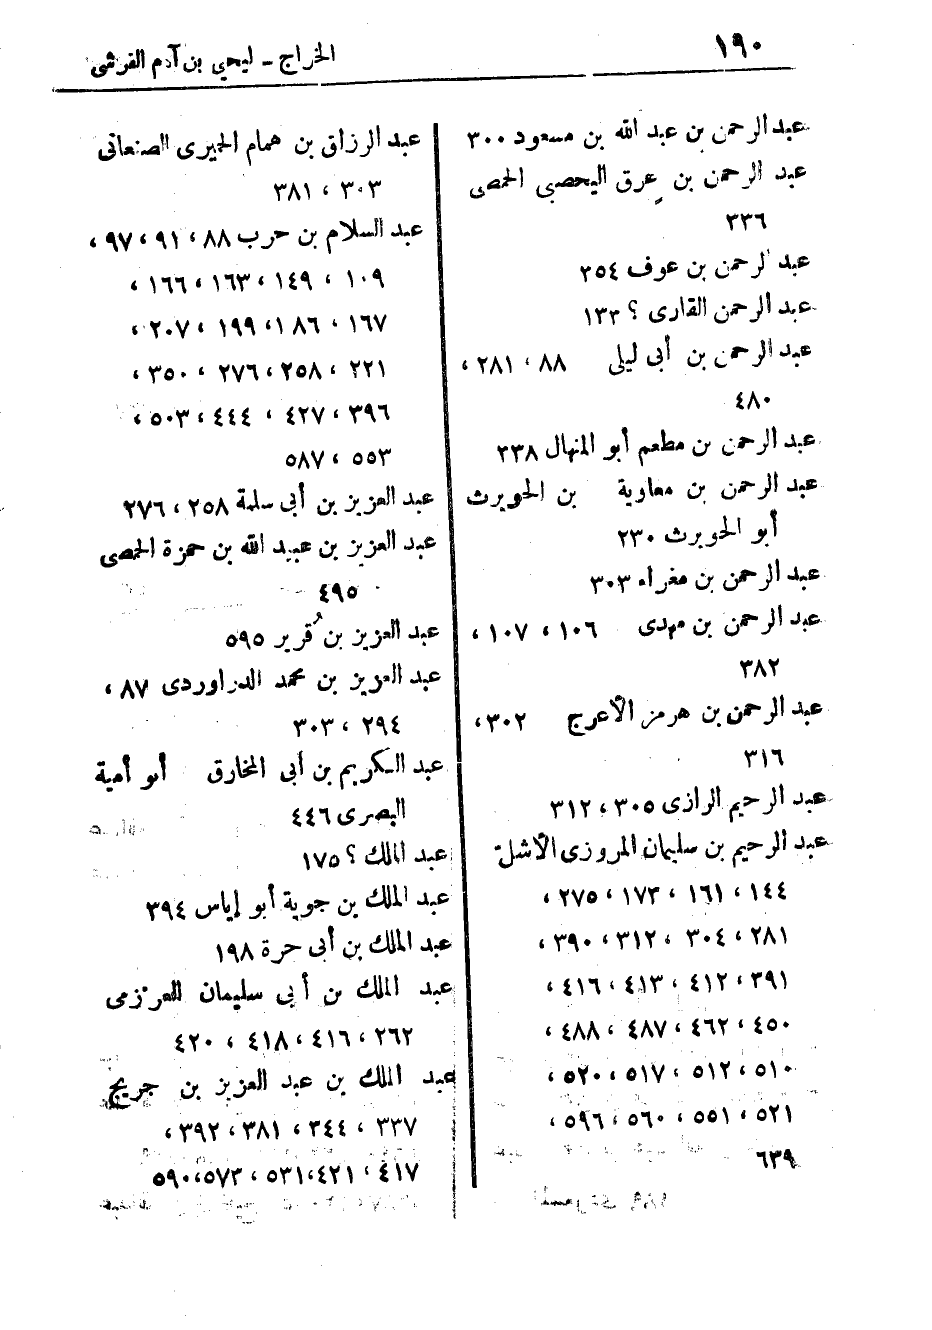 ١٩٠
الخراج ـ ليحي بن آدم القرشى
عبد الرحمن بن عبد الله بن مسعود ٣٠٠
عبد الرحمن بن عِرق اليحصبى الحمصى
٣٣٦
عبد الرحمن بن عوف ٢٥٤
عبد الرحمن القارى ؟ ١٣٣
عبد الرحمن بن أبى ليلى ٨٨ ، ٢٨١ ،
٤٨٠
عبد الرحمن بن مطعم أبو المنهال ٢٣٨
عبد الرحمن بن معاوية بن الحويرث
أبو الحويرث ٢٣٠
عبد الرحمن بن مغراء ٣٠٣
عبد الرحمن بن مهدى ١٠٦ ، ١٠٧ ،
٣٨٢
عبد الرحمن بن هرمز الأعرج ٣٠٢ ،
٣١٦
عبد الرحيم الرازى ٣٠٥ ، ٣١٢
عبد الرحيم بن سليمان المروزى الأشل
١٤٤ ، ١٦١ ، ١٧٣ ، ٢٧٥ ،
٢٨١ ، ٣٠٤ ، ٣١٢ ، ٣٩٠ ،
٣٩١ ، ٤١٢ ، ٤١٣ ، ٤١٦ ،
٤٥٠ ، ٤٦٢ ، ٤٨٧ ، ٤٨٨ ،
٥١٠ ، ٥١٢ ، ٥١٧ ، ٥٢٠ ،
٥٢١ ، ٥٥١ ، ٥٦٠ ، ٥٩٦ ،
٦٣٩
عبد الرزاق بن همام الحميرى الصنعانى
٣٠٣ ، ٣٨١
عبد السلام بن حرب ٨٨ ، ٩١ ، ٩٧ ،
١٠٩ ، ١٤٩ ، ١٦٣ ، ١٦٦ ،
١٦٧ ، ١٨٦ ، ١٩٩ ، ٢٠٧ ،
٢٢١ ، ٢٥٨ ، ٢٧٦ ، ٣٥٠ ،
٣٩٦ ، ٤٢٧ ، ٤٤٤ ، ٥٠٣ ،
٥٥٣ ، ٥٨٧
عبد العزيز بن أبى سلمة ٢٥٨ ، ٢٧٦
عبد العزيز بن عبيد الله بن حمزة الحمصى
٤٩٥
عبد العزيز بن قُرير ٥٩٥
عبد العزيز بن محمد الدراوردى ٨٧ ،
٢٩٤ ، ٣٠٣
عبد الكريم بن أبى المخارق أبو أمية
البصرى ٤٤٦
عبد الملك ؟ ١٧٥
عبد الملك بن جوية أبو إياس ٣٩٤
عبد الملك بن أبى حرة ١٩٨
عبد الملك بن أبى سليمان العرزمى
٢٦٢ ، ٤١٦ ، ٤١٨ ، ٤٢٠
عبد الملك بن عبد العزيز بن جريج
٣٣٧ ، ٣٤٤ ، ٣٨١ ، ٣٩٢ ،
٤١٧ ، ٤٢١ ، ٥٣١ ، ٥٧٣ ، ٥٩٠